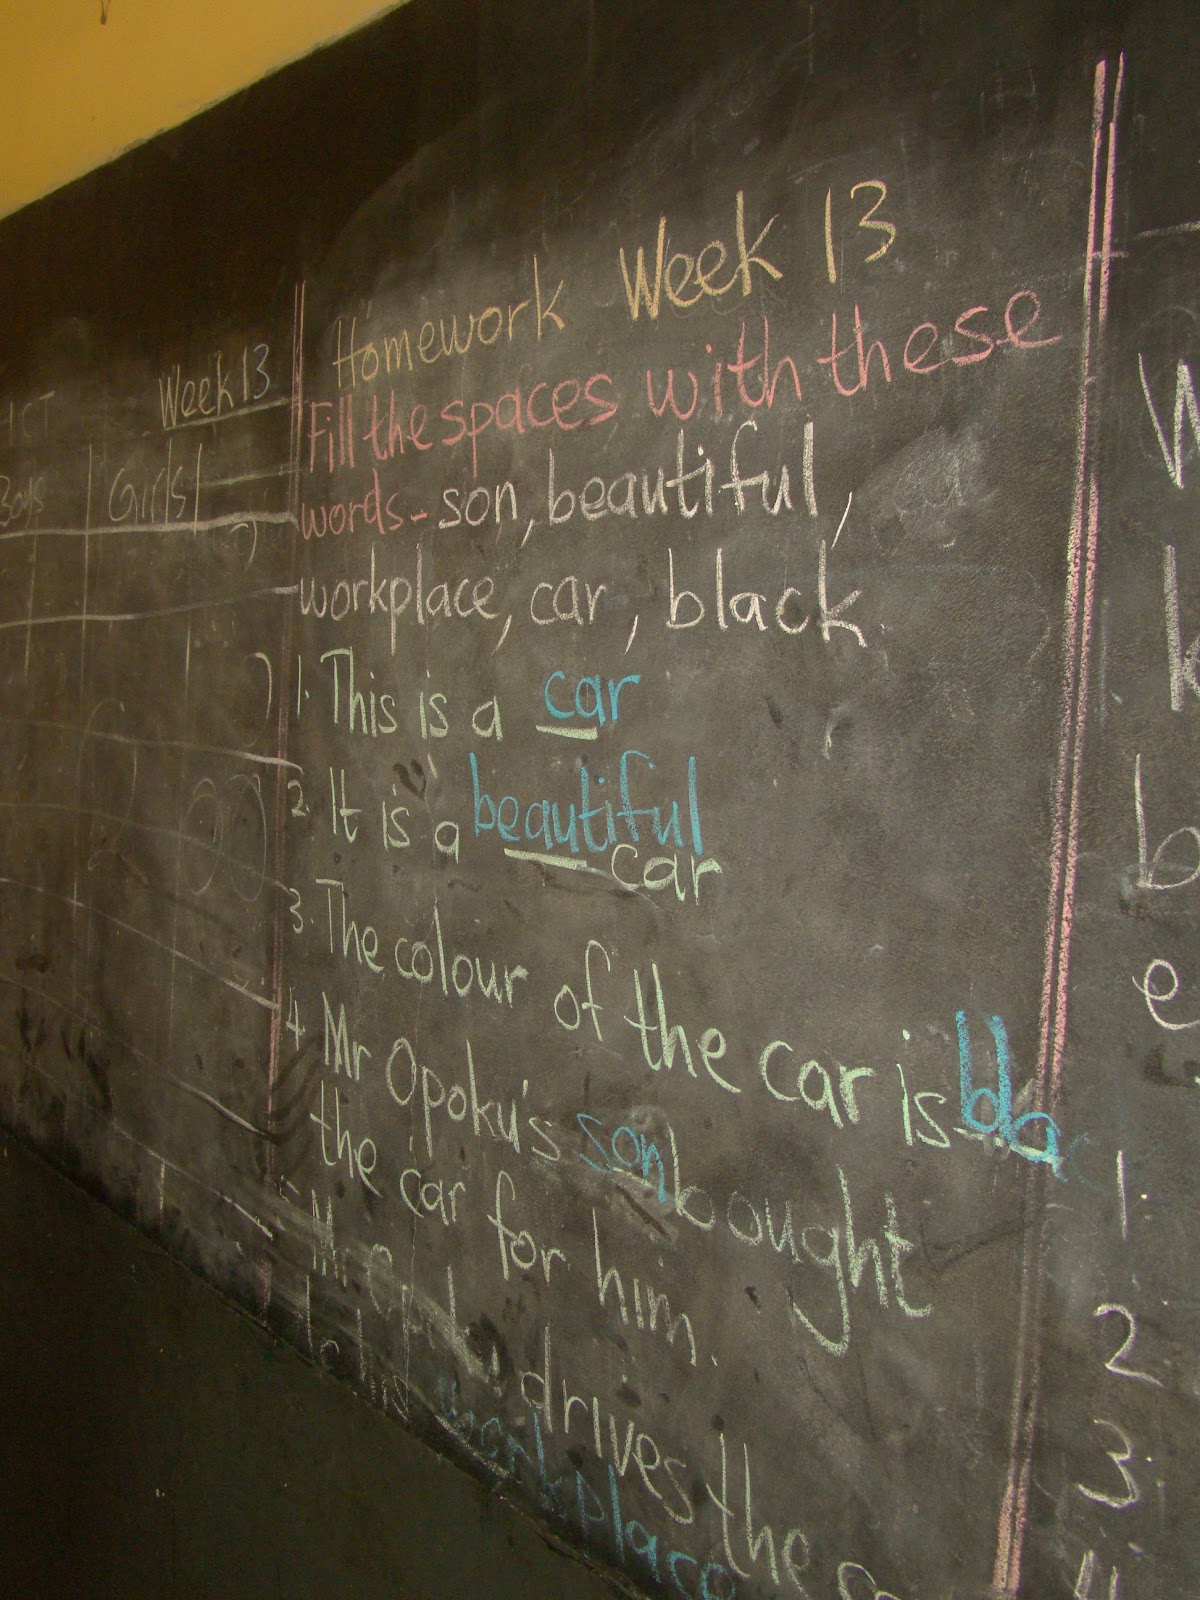 ICT Week 13
Boys Girls
Homework Week 13
Fill the spaces with these
words - son, beautiful,
workplace, car, black
1. This is a car
2. It is a beautiful car
3. The colour of the car is bla
4. Mr Opoku's son bought
the car for him.
Mr drives the
workplace
W
k
b
e
1.
2
3.
4